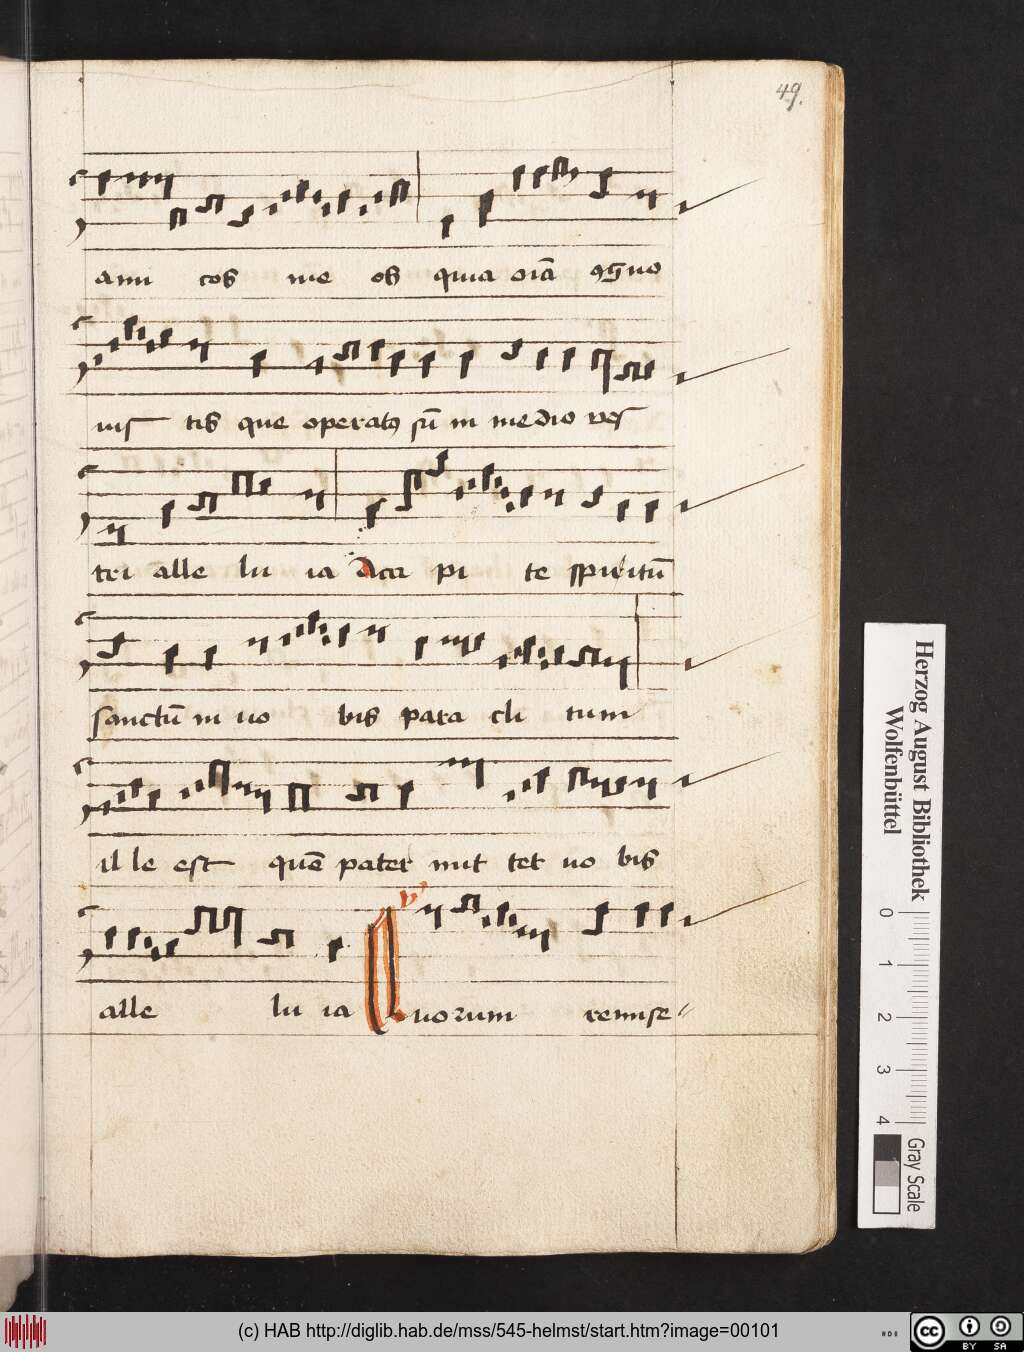 49.
ami cos me os quia oīa ꝯgno
uis tis que operatꝰ sū in medio ves
tri alle lu ia Acci pi te spiritū
sanctū in uo bis para cli tum
il le est quē pater mit tet uo bis
alle lu ia
℣
Quorum remise
Herzog August Bibliothek
Wolfenbüttel
0 1 2 3 4
Gray Scale
(c) HAB http://diglib.hab.de/mss/545-helmst/start.htm?image=00101
cc BY SA